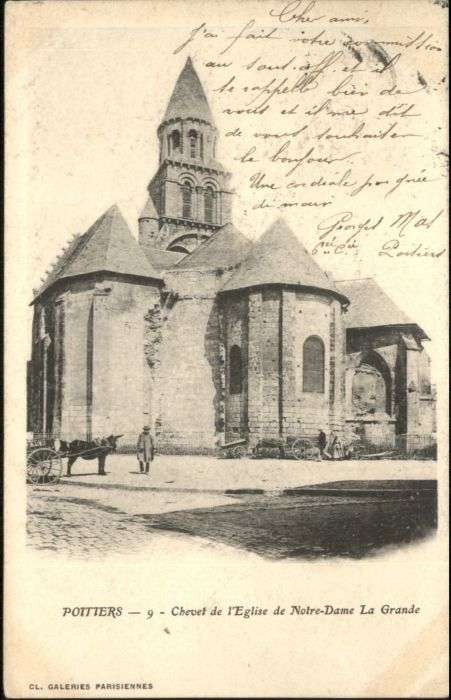 Cher ami,
J'ai fait votre commission
au sous-off. et il
se rappelle bien de
vous et il m'a dit
de vous souhaiter
le bonjour.
Une cordiale poignée
de main
Georges
Poitiers
POITIERS — 9 - Chevet de l'Eglise de Notre-Dame La Grande
CL. GALERIES PARISIENNES